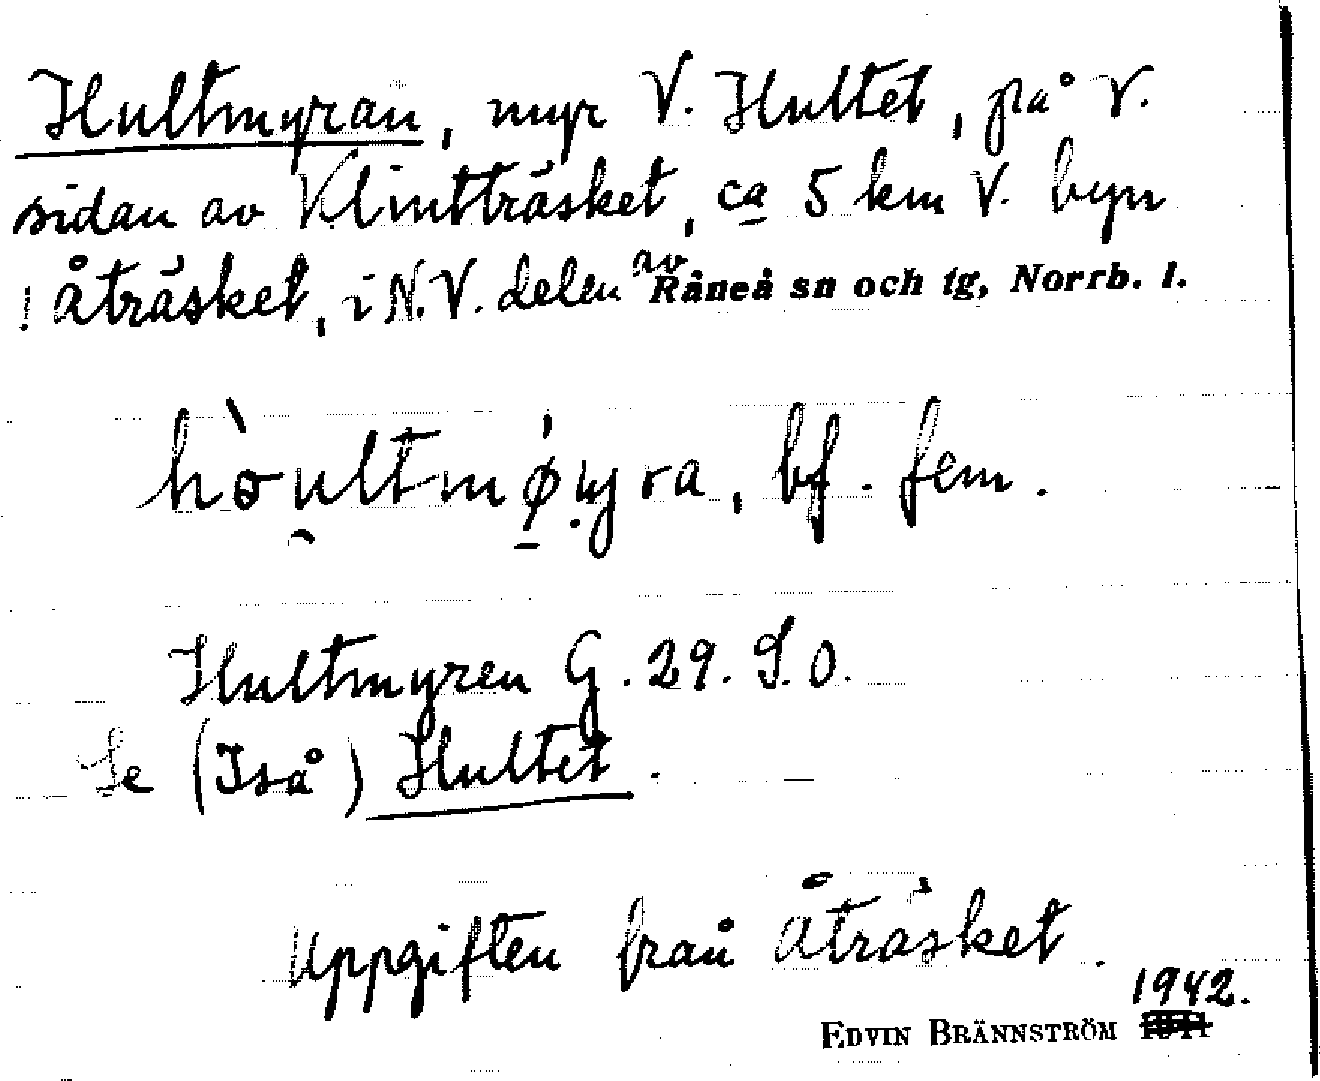 Hultmyran, myr V. Hultet, på V.
sidan av Klintträsket, ca 5 km V. byn
Åträsket, i N.V. delen av Råneå sn och tg, Norrb. l.
hò̱ultmǿụyra, bf. fem.
Hultmyren G. 29. S.O.
Se (Iså) Hultet.
Uppgiften från Åträsket.
1942.
EDVIN BRÄNNSTRÖM